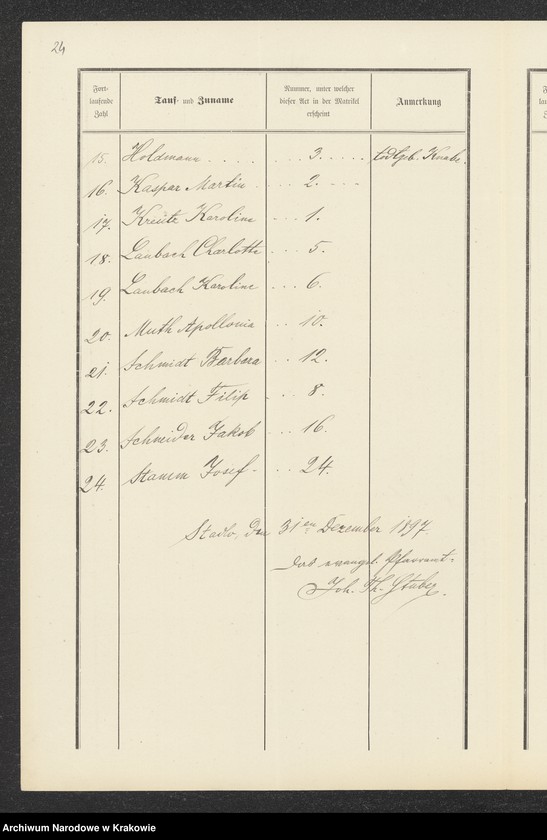 24
Fort-
laufende
Zahl
Tauf- und Zuname
Nummer, unter welcher
dieser Act in der Matrikel
erscheint
Anmerkung
15. Holdmann . . . . . . . 3. . . . . todtgeb. Knabe.
16. Kaspar Martin . . . . 2. . . .
17. Kreutz Karoline . . . 1.
18. Laubach Charlotte . . . 5.
19. Laubach Karoline . . . 6.
20. Muth Apollonia . . 10.
21. Schmidt Barbara . . 12.
22. Schmidt Filip . . . 8.
23. Schneider Jakob . . . 16.
24. Stamm Josef . . . 24.
Stadlo, den 31en Dezember 1897
Das evangel. Pfarramt.
Joh. Th.
Archiwum Narodowe w Krakowie